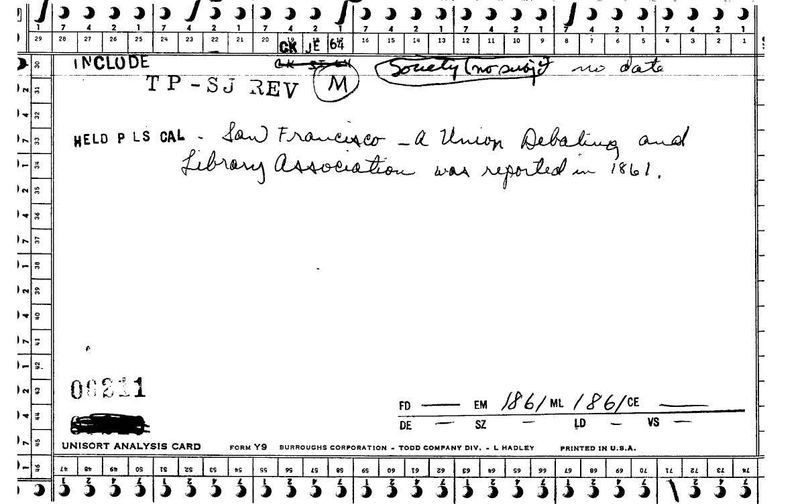 7 4 2 1 7 4 2 1 7 4 2 1 7 4 2 1 7 4 2 1 7 4 2 1 7 4 2 1
29 28 27 26 25 24 23 22 21 20 CK JE 64 16 15 14 13 12 11 10 9 8 7 6 5 4 3 2 1
INCLUDE Society (no subj) no date
TP-SJ REV M
HELD P LS CAL - San Francisco - A Union Debating and
Library Association was reported in 1861.
00211
FD — EM 1861 ML 1861 CE —
DE — SZ - LD - VS —
UNISORT ANALYSIS CARD FORM Y9 BURROUGHS CORPORATION - TODD COMPANY DIV. - L HADLEY PRINTED IN U.S.A.
47 48 49 50 51 52 53 54 55 56 57 58 59 60 61 62 63 64 65 66 67 68 69 70 71 72 73 74